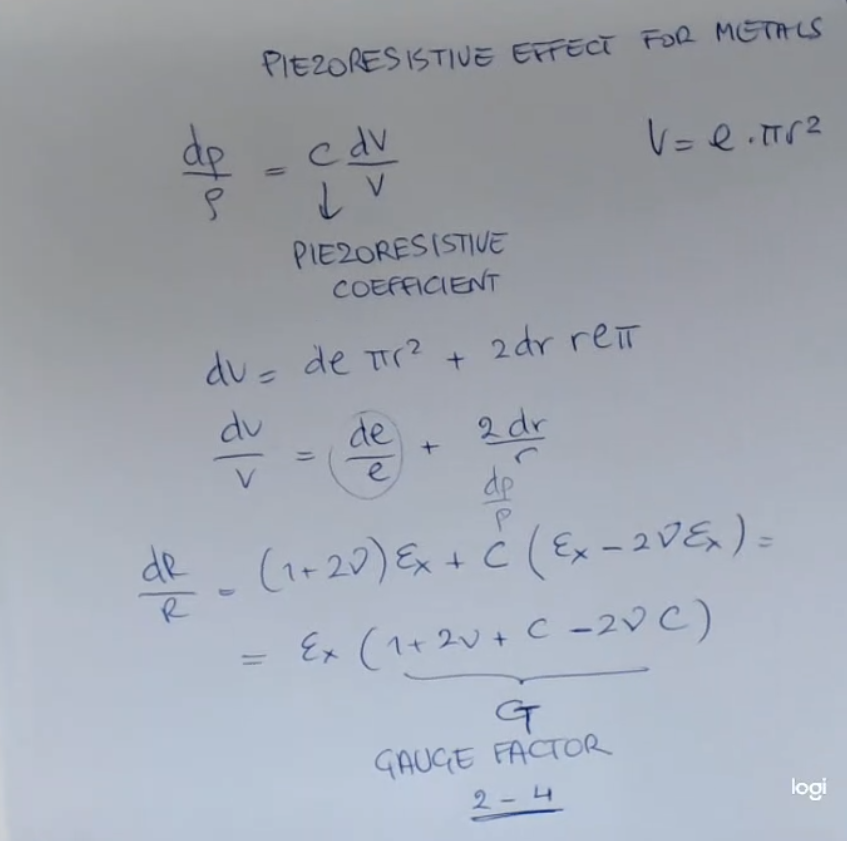 PIEZORESISTIVE EFFECT FOR METALS
dρ/ρ = C dV/V
V = l · πr²
↓
PIEZORESISTIVE
COEFFICIENT
dV = dl πr² + 2dr rlπ
dV/V = dl/l + 2dr/r
dρ/ρ
dR/R = (1+2ν)εx + C(εx − 2νεx) =
= εx (1+2ν + C − 2νC)
G
GAUGE FACTOR
2 - 4
logi